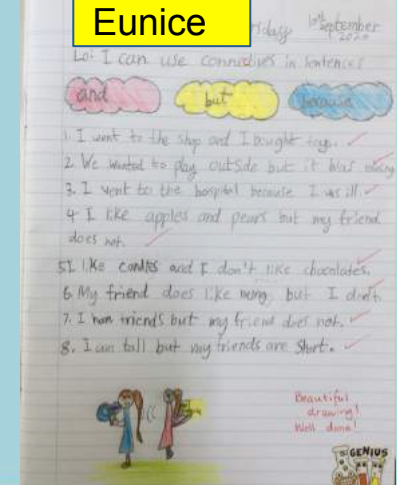 Eunice
Friday 10th September 2020
Lo: I can use connectives in sentences
and but because
1. I went to the shop and I bought toys.
2. We wanted to play outside but it was raining
3. I went to the hospital because I was ill.
4 I like apples and pears but my friend
does not.
5 I like candies and I don't like chocolates.
6. My friend does like but I don't
7. I have friends but my friend does not.
8. I am tall but my friends are short.
Beautiful
drawing!
Well done!
GENIUS